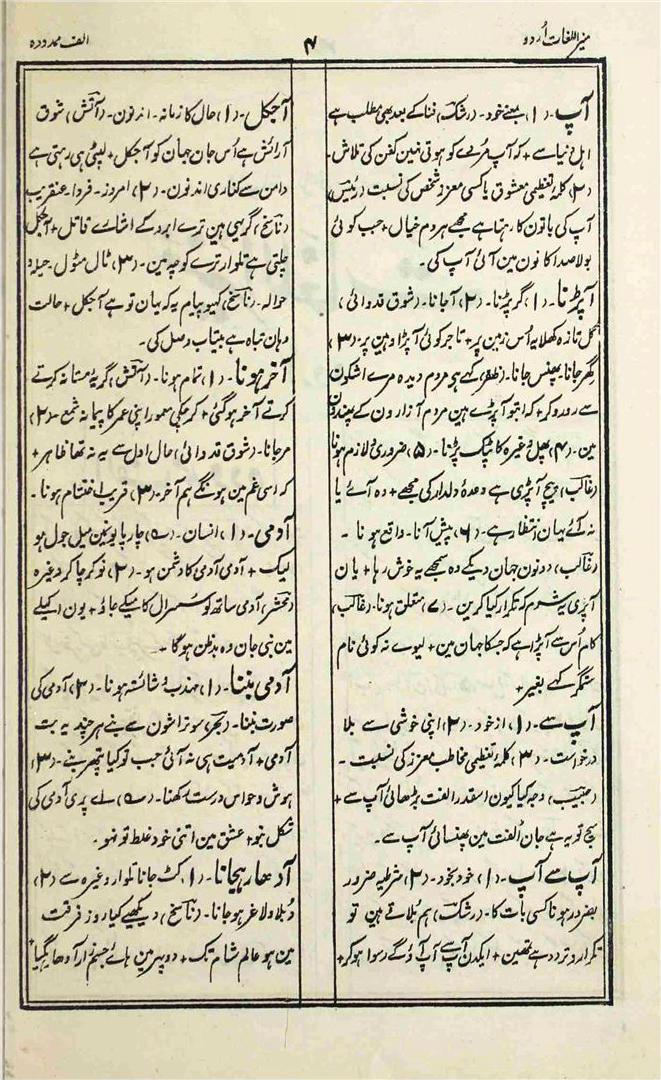 منیر اللغات اُردو
۴
الف ممدودہ
آپ۔ (۱) بمعنے خود۔ (رشک) فنا کے بعد بھی مطلب ہے
اہلِ دنیا سے + کہ آپ مردے کو ہوتی نہیں کفن کی تلاش۔
(۲) کلمۂ تعظیمی معشوق یا کسی معزز شخص کی نسبت (رئیس)
آپ کی باتون کا رہتا ہے مجھے ہر دم خیال + جب کوئی
بولا صدا کانون مین آئی آپ کی۔
آپڑنا۔ (۱) گر پڑنا۔ (۲) آجانا۔ (شوق قدوائی)
گل تازہ کھلا یہ اُس زمین پر + تاجر کوئی آپڑا وہین پر۔ (۳)
گھر جانا۔ پھنس جانا۔ (ظفر) کہے ہی مردم دیدہ مرے اشکون
سے رو رو کر + کہ ابتو آپڑے ہین مردم آزارون کے پھندون
مین۔ (۴) پھل وغیرہ کا ٹپک پڑنا۔ (۵) ضروری و لازم ہونا
(غالب) پیچ آپڑی ہے وعدۂ دلدار کی مجھے + وہ آئے یا
نہ آئے یہان انتظار ہے۔ (۶) پیش آنا۔ واقع ہونا۔
(غالب) دونون جہان دیکے وہ سمجھے یہ خوش رہا + یان
آپڑی یہ شرم کہ تکرار کیا کرین۔ (۷) متعلق ہونا۔ (غالب)
کام اُس سے آپڑا ہے کہ جسکا جہان مین + لیوے نہ کوئی نام
ستمگر کہے بغیر +
آپ سے۔ (۱) از خود۔ (۲) اپنی خوشی سے بلا
درخواست۔ (۳) کلمۂ تعظیمی مخاطب معزز کی نسبت۔
(حبیب) وجہ کیا کیون اسقدر الفت بڑھائی آپ سے +
سچ تو یہ ہے جان اُلفت مین پھنسائی آپ سے۔
آپ سے آپ۔ (۱) خودبخود۔ (۲) شرطیہ ضرور
بضرور ہونا کسی بات کا۔ (رشک) ہم بُلاتے ہین تو
تکرار و تردد ہے تمھین + ایکدن آپ سے آپ آؤگے رسوا ہوکر +
آجکل۔ (۱) حال کا زمانہ۔ اندنون۔ (آتش) شوق
آرائش ہے اُس جان جہان کو آجکل + لپٹی ہی رہتی ہے
دامن سے کناری اندنون۔ (۲) امروز۔ فردا۔ عنقریب
(ناسخ) گر یہی ہین ترے ابرو کے اشارے قاتل + آجکل
چلتی ہے تلوار ترے کوچہ مین۔ (۳) ٹال مٹول۔ حیلہ
حوالہ۔ (ناسخ) کہیو پیام یہ کہ یہان تو ہے آجکل + حالت
وہان تباہ ہے بیتاب وصل کی۔
آخر ہونا۔ (۱) تمام ہونا۔ (آتش) گریۂ مستانہ کرتے
کرتے آخر ہوگئی + کر چکی معمور اپنی عمر کا پیمانہ شمع۔ (۲)
مرجانا۔ (شوق قدوائی) حال اول سے یہ نہ تھا ظاہر +
کہ اسی غم مین ہونگے ہم آخر۔ (۳) قریب اختتام ہونا۔
آدمی۔ (۱) انسان۔ (ے) چارپایونمین میل جول ہو
لیک + آدمی آدمی کا دشمن ہو۔ (۲) نوکر چاکر وغیرہ
(محشر) آدمی ساتھ لو سُسرال کا میکے جاؤ + یون اکیلے
مین نبی جان وہ بدظن ہوگا۔
آدمی بننا۔ (۱) مہذب و شائستہ ہونا۔ (۲) آدمی کی
صورت بننا۔ (بحر) سو تراشون سے بنے ہرچند یہ بت
آدمی + آدمیت ہی نہ آئی جب تو کیا پتھر بنے۔ (۳)
ہوش و حواس درست رکھنا۔ (ے) اے پری آدمی کی
شکل بنو + عشق مین اتنی خود غلط تو نہو۔
آدھا رہجانا۔ (۱) کٹ جانا تلوار وغیرہ سے (۲)
دُبلا و لاغر ہوجانا۔ (ناسخ) دیکھیے کیا روز فرقت
مین ہو عالم شام تک + دوپہر مین ہائے جسم زار آدھا رہگیا +